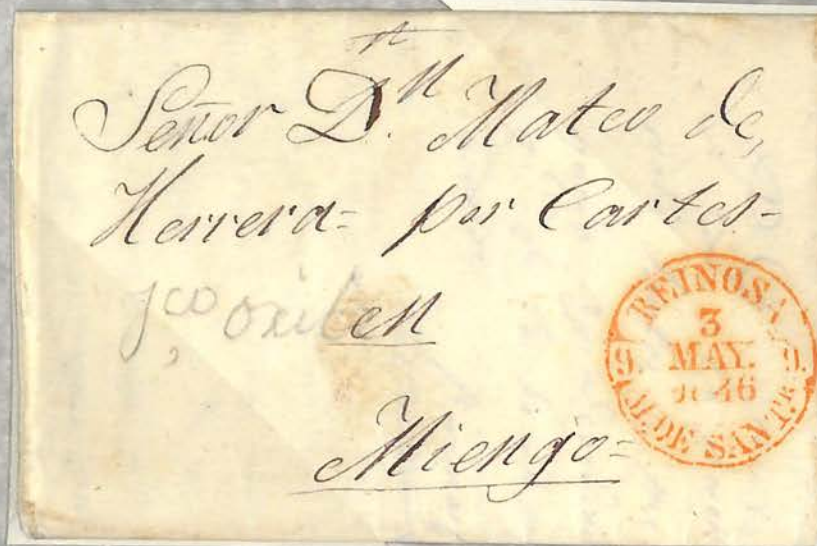 Señor D.n Mateo de
Herrera= por Cartes-
en
Miengo=
REINOSA
3
MAY.
1846
9. 9.
M. DE SANT.R